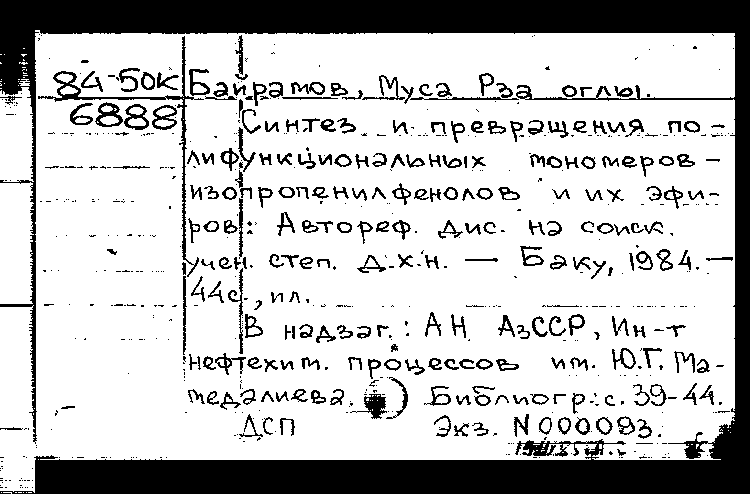 84-50К Байрамов, Муса Рза оглы.
6888 Синтез и превращения по-
лифункциональных мономеров -
изопропенилфенолов и их эфи-
ров: Автореф. дис. на соиск.
учен. степ. д.х.н. — Баку, 1984. —
44с., ил.
В надзаг.: АН АзССР, Ин-т
нефтехим. процессов им. Ю.Г. Ма-
медалиева. Библиогр.: с. 39-44.
ДСП Экз. N 000093.